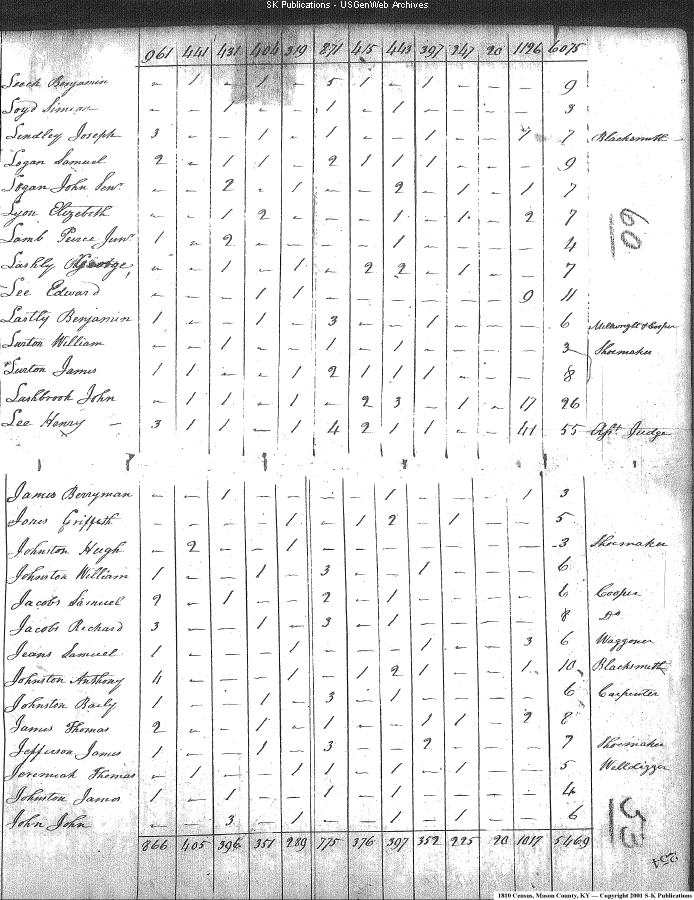 SK Publications - USGenWeb Archives
961 441 431 404 319 871 415 443 397 247 20 1126 6075
Leech Benjamin - 1 - 1 - 5 1 - 1 - - - 9
Loyd Simeon - - 1 - - 1 - 1 - - - - 3
Lindley Joseph 3 - - 1 - 1 - - 1 - - 1 7 Blacksmith
Logan Samuel 2 - 1 1 - 2 1 1 1 - - - 9
Logan John Senr. - - 2 - 1 - - 2 - 1 - 1 7
Lyon Elizebeth - - 1 2 - - - 1 - 1 - 2 7
Lamb Peirce Junr. 1 - 2 - - - - 1 - - - - 4
Lashly George, - - 1 - 1 - 2 2 - 1 - - 7
Lee Edward - - - 1 1 - - - - - - 9 11
Lastly Benjamin 1 - - 1 - 3 - - 1 - - - 6 Millwright & Cooper
Lurton William - - 1 - - 1 - 1 - - - - 3 Shoemaker
Lurton James 1 1 - - 1 2 1 1 1 - - - 8
Lashbrook John - 1 1 - 1 - 2 3 - 1 - 17 26
Lee Henry - 3 1 1 - 1 4 2 1 1 - - 41 55 Asst. Judge
60
James Berryman - - 1 - - - - 1 - - - 1 3
Jones Griffeth - - - - 1 - 1 2 - 1 - - 5
Johnston Hugh - 2 - - 1 - - - - - - - 3 Shoemaker
Johnston William 1 - - 1 - 3 - - 1 - - - 6
Jacobs Samuel 2 - 1 - - 2 - 1 - - - - 6 Cooper
Jacobs Richard 3 - - 1 - 3 - 1 - - - - 8 Do
Jeans Samuel 1 - - - 1 - - - 1 - - 3 6 Waggoner
Johnston Anthony 4 - - - 1 - 1 2 1 - - 1 10 Blacksmith
Johnston Baily 1 - - 1 - 3 - 1 - - - - 6 Carpenter
James Thomas 2 - - 1 - 1 - - 1 1 - 2 8
Jefferson James 1 - - 1 - 3 - - 2 - - - 7 Shoemaker
Jeremiah Thomas - 1 - - 1 1 - 1 - 1 - - 5 Welldigger
Johnston James 1 - 1 - - 1 - 1 - - - - 4
John John - - 3 - 1 - - 1 - 1 - - 6
866 405 396 351 289 775 376 397 352 225 20 1017 5469
53
254
1810 Census, Mason County, KY — Copyright 2001 S-K Publications